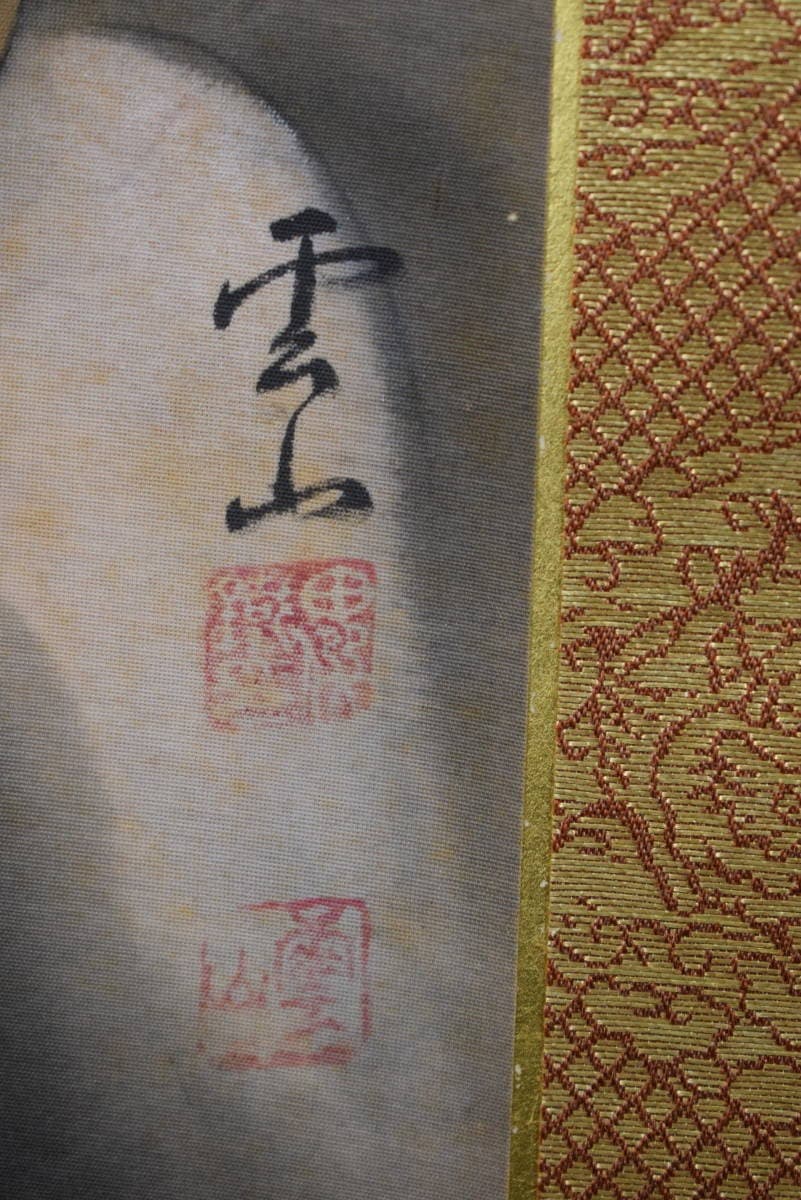 雲山
雲山